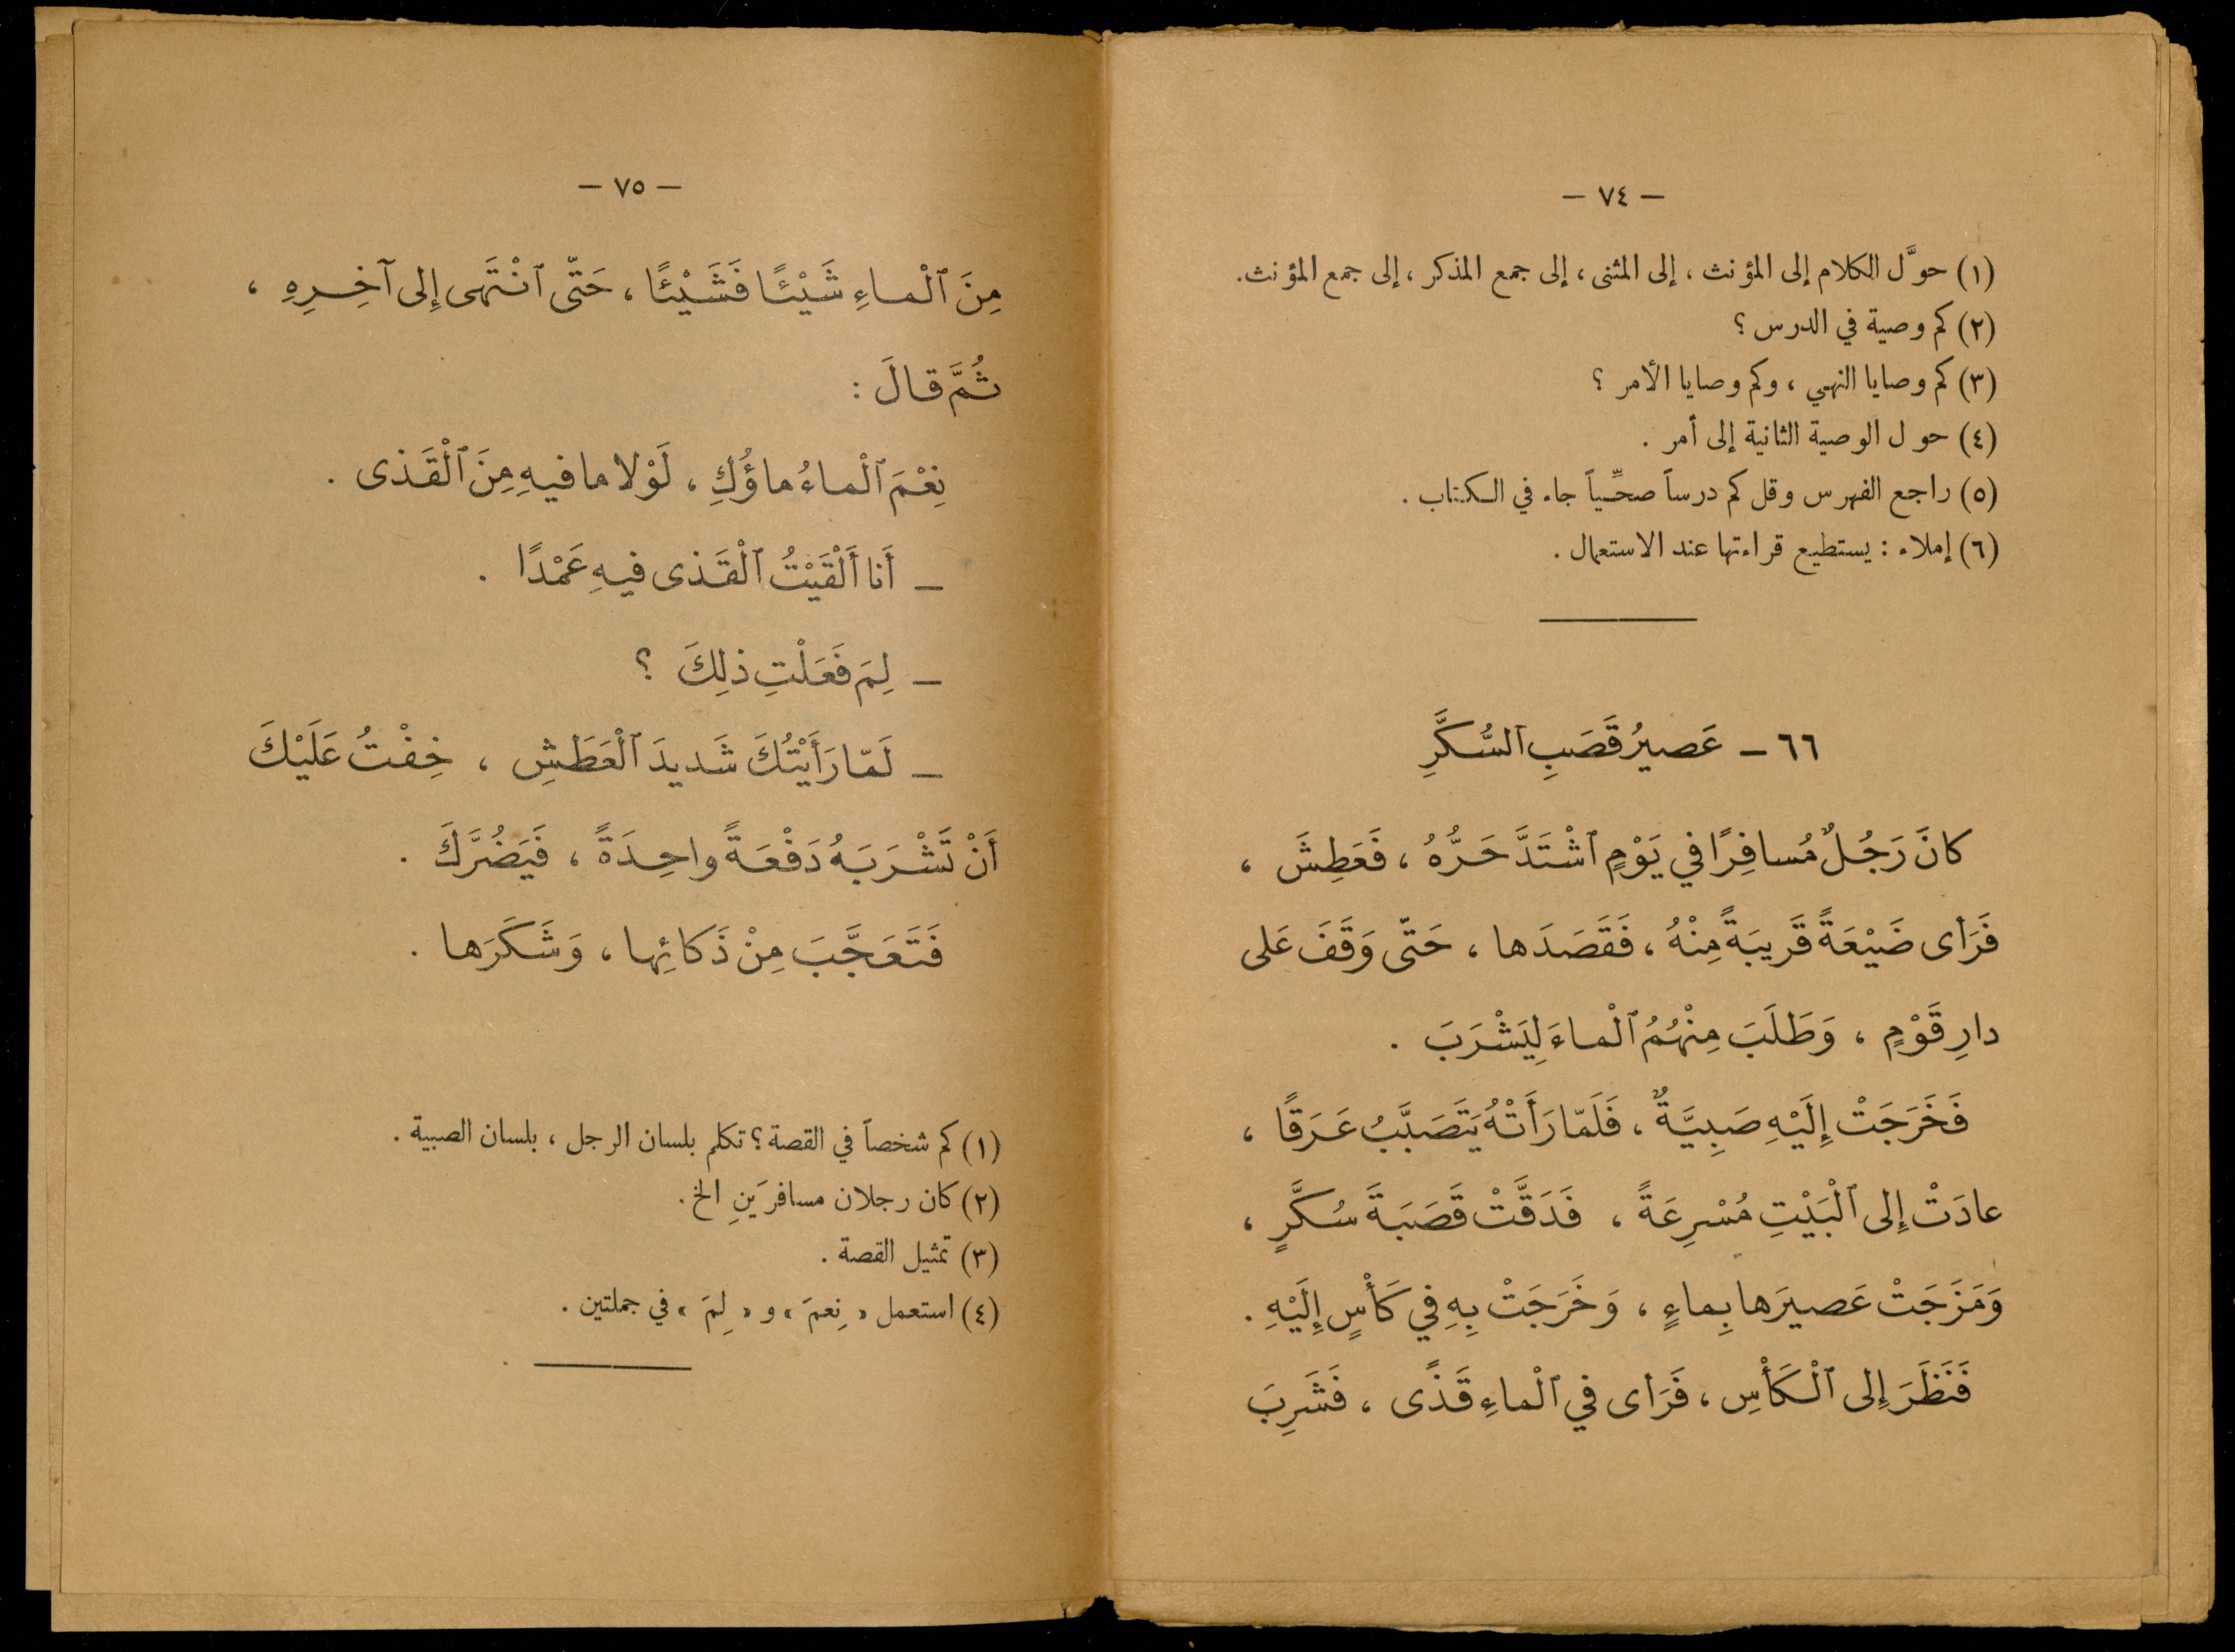 — ٧٤ —
(١) حوَّل الكلام إلى المؤنث ، إلى المثنى ، إلى جمع المذكر ، إلى جمع المؤنث.
(٢) كم وصية في الدرس ؟
(٣) كم وصايا النهي ، وكم وصايا الأمر ؟
(٤) حول الوصية الثانية إلى أمر .
(٥) راجع الفهرس وقل كم درساً صحِّياً جاء في الكتاب .
(٦) إملاء : يستطيع قراءتها عند الاستعمال .
٦٦ – عَصيرُ قَصَبِ ٱلسُّكَّرِ
كانَ رَجُلٌ مُسافِرًا في يَوْمٍ ٱشْتَدَّ حَرُّهُ ، فَعَطِشَ ،
فَرَأى ضَيْعَةً قَريبَةً مِنْهُ ، فَقَصَدَها ، حَتّى وَقَفَ عَلى
دارِ قَوْمٍ ، وَطَلَبَ مِنْهُمُ ٱلْماءَ لِيَشْرَبَ .
فَخَرَجَتْ إِلَيْهِ صَبِيَّةٌ ، فَلَمّا رَأَتْهُ يَتَصَبَّبُ عَرَقًا ،
عادَتْ إِلى ٱلْبَيْتِ مُسْرِعَةً ، فَدَقَّتْ قَصَبَةَ سُكَّرٍ ،
وَمَزَجَتْ عَصيرَها بِماءٍ ، وَخَرَجَتْ بِهِ في كَأْسٍ إِلَيْهِ .
فَنَظَرَ إِلى ٱلْكَأْسِ ، فَرَأى في ٱلْماءِ قَذًى ، فَشَرِبَ
— ٧٥ —
مِنَ ٱلْماءِ شَيْئًا فَشَيْئًا ، حَتّى ٱنْتَهى إِلى آخِرِهِ ،
ثُمَّ قالَ :
نِعْمَ ٱلْماءُ ماؤُكِ ، لَوْلا ما فيهِ مِنَ ٱلْقَذى .
– أَنا أَلْقَيْتُ ٱلْقَذى فيهِ عَمْدًا .
– لِمَ فَعَلْتِ ذلِكَ ؟
– لَمّا رَأَيْتُكَ شَديدَ ٱلْعَطَشِ ، خِفْتُ عَلَيْكَ
أَنْ تَشْرَبَهُ دَفْعَةً واحِدَةً ، فَيَضُرَّكَ .
فَتَعَجَّبَ مِنْ ذَكائِها ، وَشَكَرَها .
(١) كم شخصاً في القصة ؟ تكلم بلسان الرجل ، بلسان الصبية .
(٢) كان رجلان مسافرَينِ الخ .
(٣) تمثيل القصة .
(٤) استعمل « نِعمَ » و « لِمَ » في جملتين .